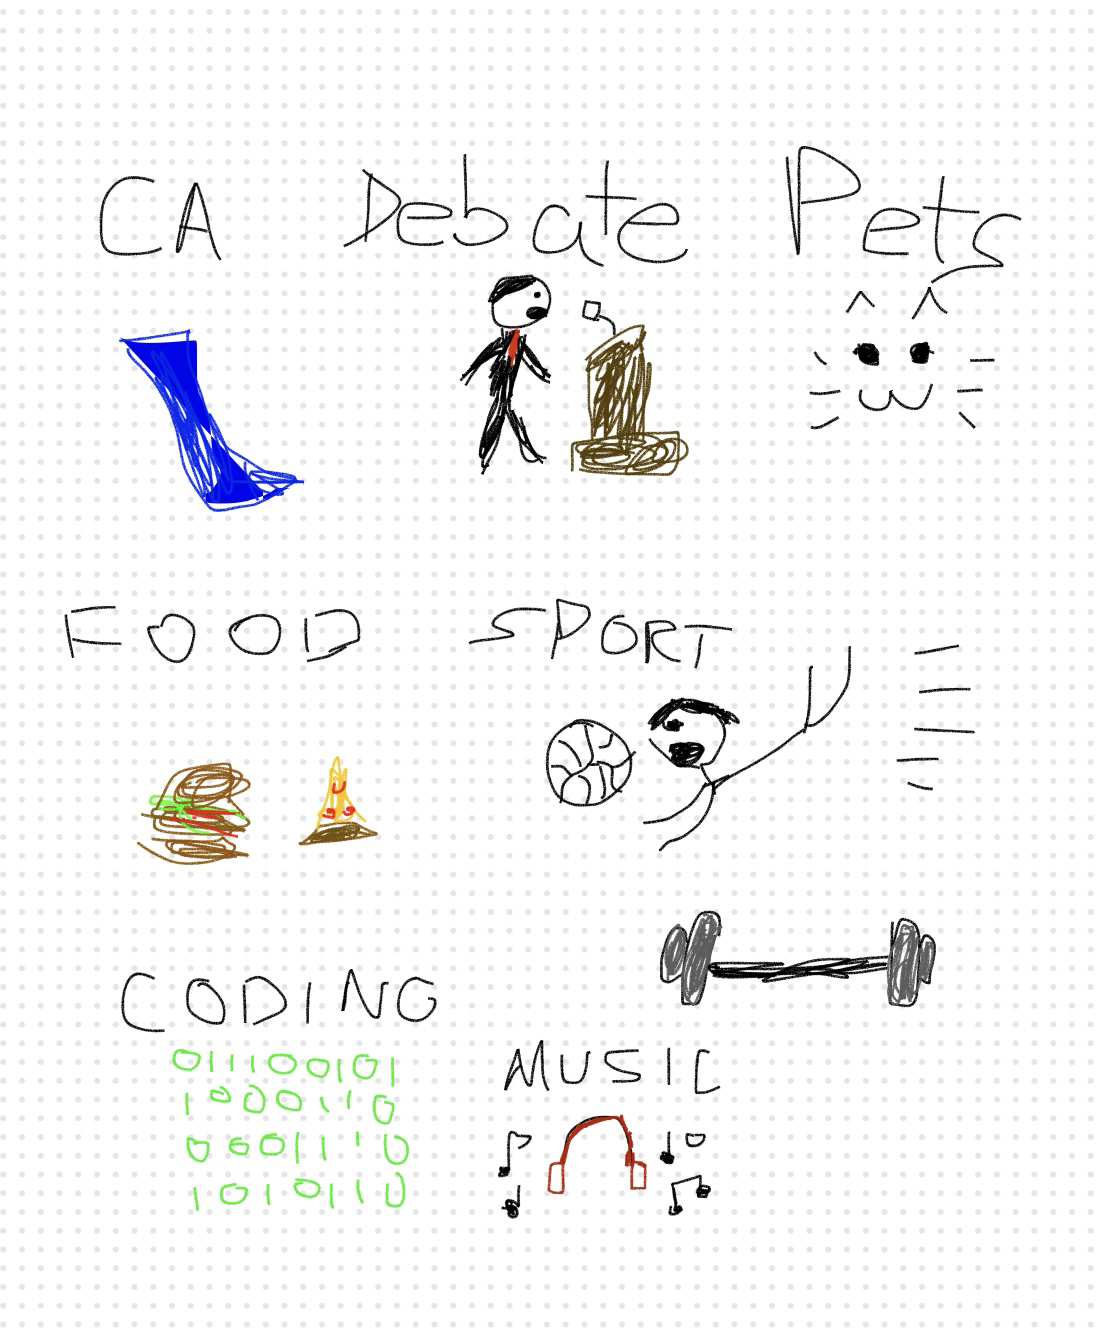 CA Debate Pets
FOOD SPORT
CODING
011100101
1000110
0001110
1010110
MUSIC